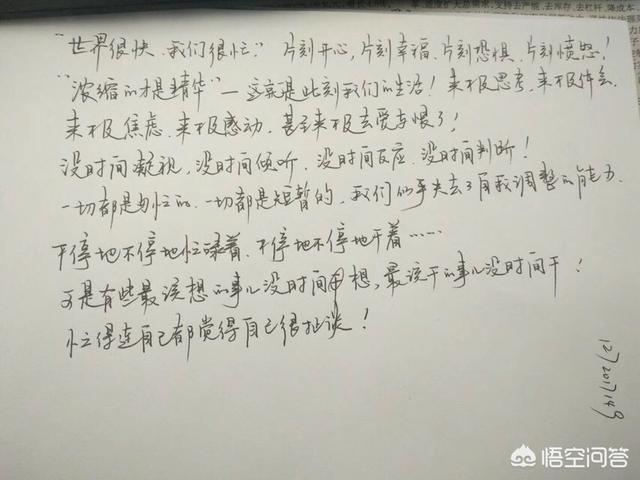 “世界很快、我们很忙”：片刻开心，片刻幸福、片刻恐惧、片刻愤怒！
“浓缩的才是精华”—这就是此刻我们的生活！来不及思考，来不及体会，
来不及焦虑、来不及感动，甚至来不及去爱与恨了！
没时间凝视，没时间倾听、没时间反应、没时间判断！
一切都是匆忙的、一切都是短暂的，我们似乎失去了自我调整的能力、
不停地不停地忙碌着、不停地不停地干着……
可是有些最该想的事儿没时间想，最该干的事儿没时间干！
忙得连自己都觉得自己很扯谈！
悟空问答